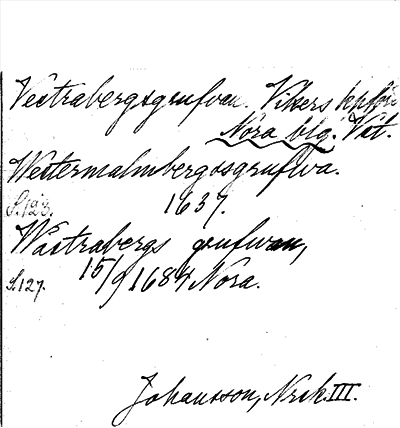 Vestrabergsgrufvan. Vikers kpför
Nora blg. Vst.
Westermalmbergosgrufwa.
S.123. 1637.
Wästrabergs grufwan,
S.127. 15/9 1684 Nora.
Johansson, Nrck. III.